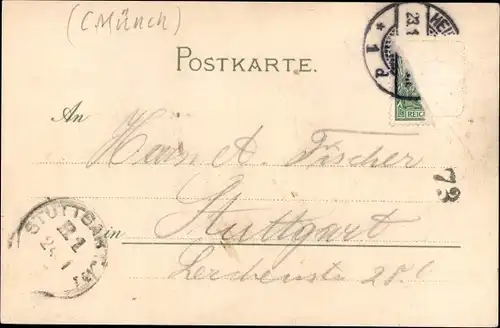 (C Münch)
POSTKARTE.
* 1 d
23.1
HEI
REIC
An Herrn A. Fischer
73
in Stuttgart
STUTTGART
24. 1
Lerchenstr